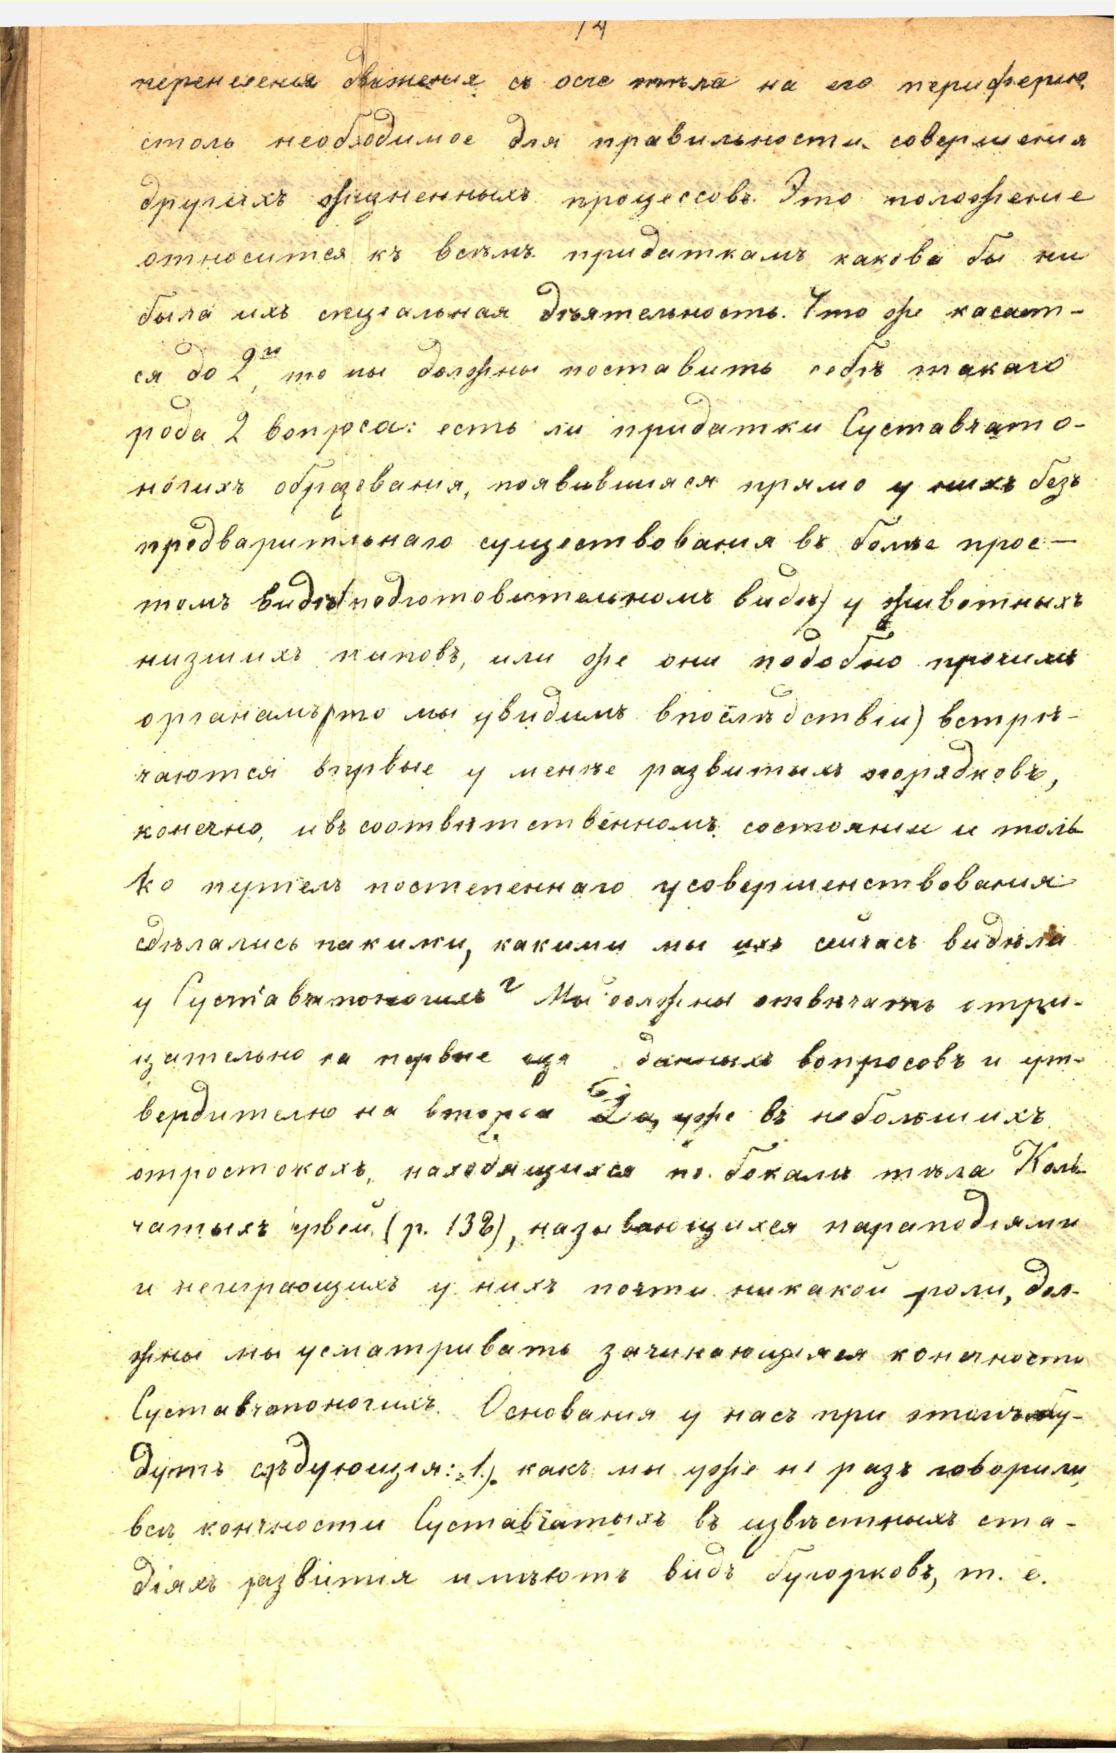 14
перенесенія движенія съ оси тѣла на его периферію,
столь необходимое для правильности совершенія
другихъ жизненныхъ процессовъ. Это положеніе
относится къ всѣмъ придаткамъ какова бы ни
была ихъ спеціальная дѣятельность. Что же касает-
ся до 2го, то мы должны поставить себѣ такаго
рода 2 вопроса: есть ли придатки Суставчато-
ногихъ образованія, появившияся прямо у нихъ безъ
предварительнаго существованія въ болѣе прос-
томъ видѣ (подготовительномъ видѣ) у животныхъ
низшихъ типовъ, или же они подобно прочимъ
органамъ (что мы увидимъ впослѣдствіи) встрѣ-
чаются впервые у менѣе развитыхъ порядковъ,
конечно, и въ соотвѣтственномъ состояніи и толь-
ко путемъ постепеннаго усовершенствованія
сдѣлались такими, какими мы ихъ сейчасъ видѣли
у Суставчатоногихъ? Мы должны отвѣчать отри-
цательно на первые данныхъ вопросовъ и ут-
вердительно на вторые уже въ небольшихъ
отросткахъ, находящихся по бокамъ тѣла Коль-
чатыхъ червей (р. 138), называющихся параподіями
и неиграющихъ у нихъ почти никакой роли, дол-
жны мы усматривать зачинающіяся конечности
Суставчатоногихъ. Основанія у насъ при этомъ бу-
дутъ слѣдующія: 1) какъ мы уже не разъ говорили,
всѣ конечности Суставчатыхъ въ извѣстныхъ ста-
діяхъ развитія имѣютъ видъ бугорковъ, т. е.